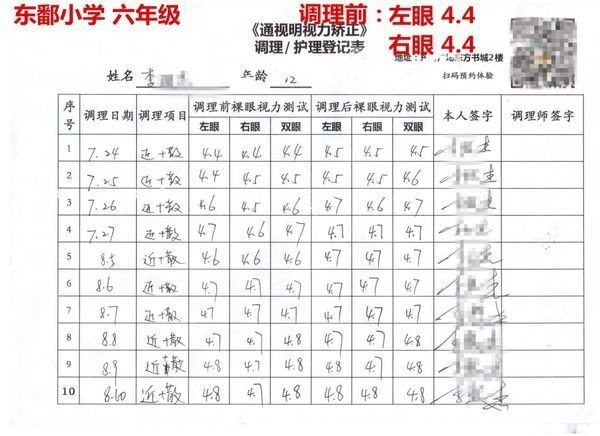 东鄱小学 六年级 调理前:左眼 4.4
《通视明视力矫正》 右眼 4.4
调理/护理登记表
方书城2楼
姓名 李 年龄 12 扫码预约体验
序号 调理日期 调理项目 调理前裸眼视力测试 调理后裸眼视力测试 本人签字 调理师签字
左眼 右眼 双眼 左眼 右眼 双眼
1 7.24 近+散 4.4 4.4 4.4 4.5 4.5 4.5
2 7.25 近+散 4.4 4.5 4.5 4.5 4.5 4.6
3 7.26 近+散 4.6 4.5 4.6 4.7 4.6 4.7
4 7.27 近+散 4.7 4.6 4.7 4.7 4.7 4.7
5 8.5 近+散 4.6 4.6 4.6 4.7 4.7 4.7
6 8.6 近+散 4.7 4.7 4.7 4.7 4.7 4.7
7 8.7 近+散 4.7 4.7 4.7 4.7 4.7 4.7
8 8.8 近+散 4.7 4.7 4.8 4.7 4.7 4.8
9 8.9 近+散 4.8 4.7 4.8 4.8 4.7 4.8
10 8.10 近+散 4.8 4.7 4.8 4.8 4.8 4.8